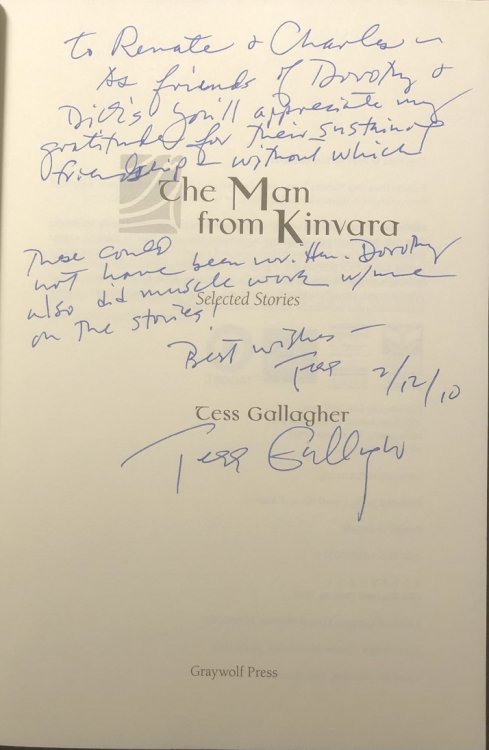 to Renate & Charles —
As friends of Dorothy &
Dick's you'll appreciate my
gratitude for their sustaining
friendship – without which
The Man
from Kinvara
These could
not have been wr. Dorothy
also did muscle work w/me
on the stories!
Selected Stories
Best wishes —
Tess 2/12/10
Tess Gallagher
Tess Gallagher
Graywolf Press